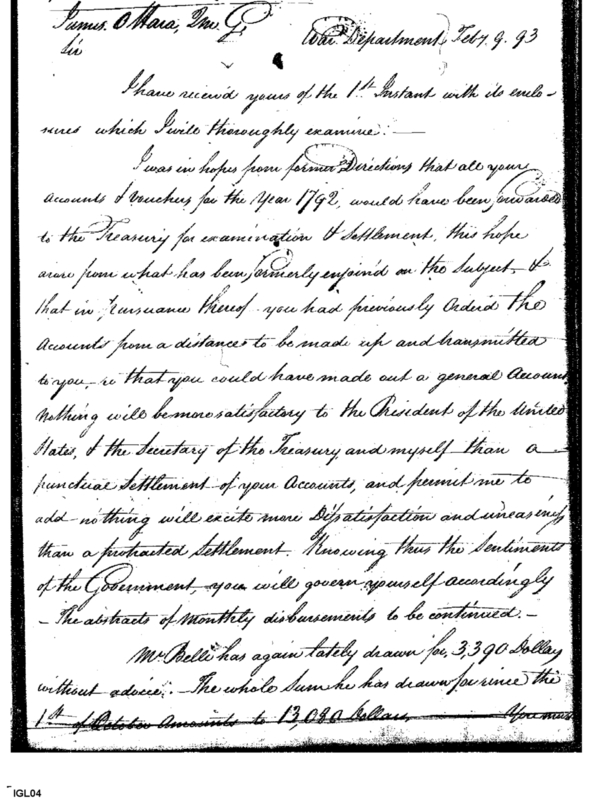 James O Hara, Qm G,
War Department, Feby. 9. 93
Sir
I have receiv'd yours of the 1st Instant with its enclo-
sures which I will thoroughly examine. —
I was in hopes from former Directions that all your
accounts & vouchers for the Year 1792, would have been forwarded
to the Treasury for examination & Settlement, this hope
arose from what has been formerly enjoin'd on the Subject, &
that in pursuance thereof you had previously Order'd the
Accounts from a distance to be made up and transmitted
to you so that you could have made out a general Account,
Nothing will be more satisfactory to the President of the United
States, & the Secretary of the Treasury and myself than a
punctual Settlement of your Accounts, and permit me to
add nothing will excite more Dissatisfaction and uneasiness
than a protracted Settlement. Knowing thus the Sentiments
of the Government, you will govern yourself accordingly
— The abstracts of monthly disbursements to be continued. —
Mr Belli has again lately drawn for 3,390 Dollars
without advice. — The whole Sum he has drawn for since the
1st of October Amounts to 13,080 Dollars, You must
IGL04